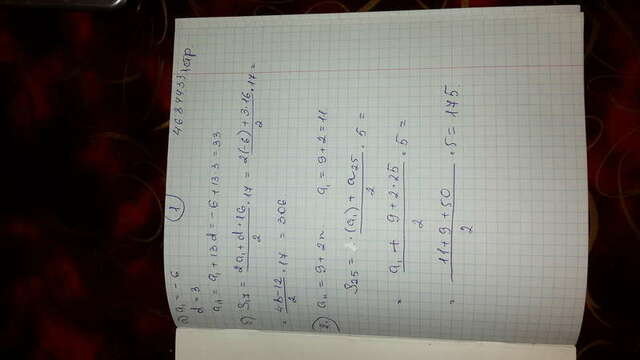 1.
а) a₁ = -6
d = 3
a₁₄ = a₁ + 13d = -6 + 13·3 = 33
б) S₁₇ = (2a₁ + d·16)/2 · 17 = (2(-6) + 3·16)/2 · 17 =
= (48-12)/2 · 17 = 306
2. aₙ = 9 + 2n a₁ = 9 + 2 = 11
S₂₅ = ((a₁) + a₂₅)/2 · 5 =
= (a₁ + 9 + 2·25)/2 · 5 =
= (11 + 9 + 50)/2 · 5 = 175.